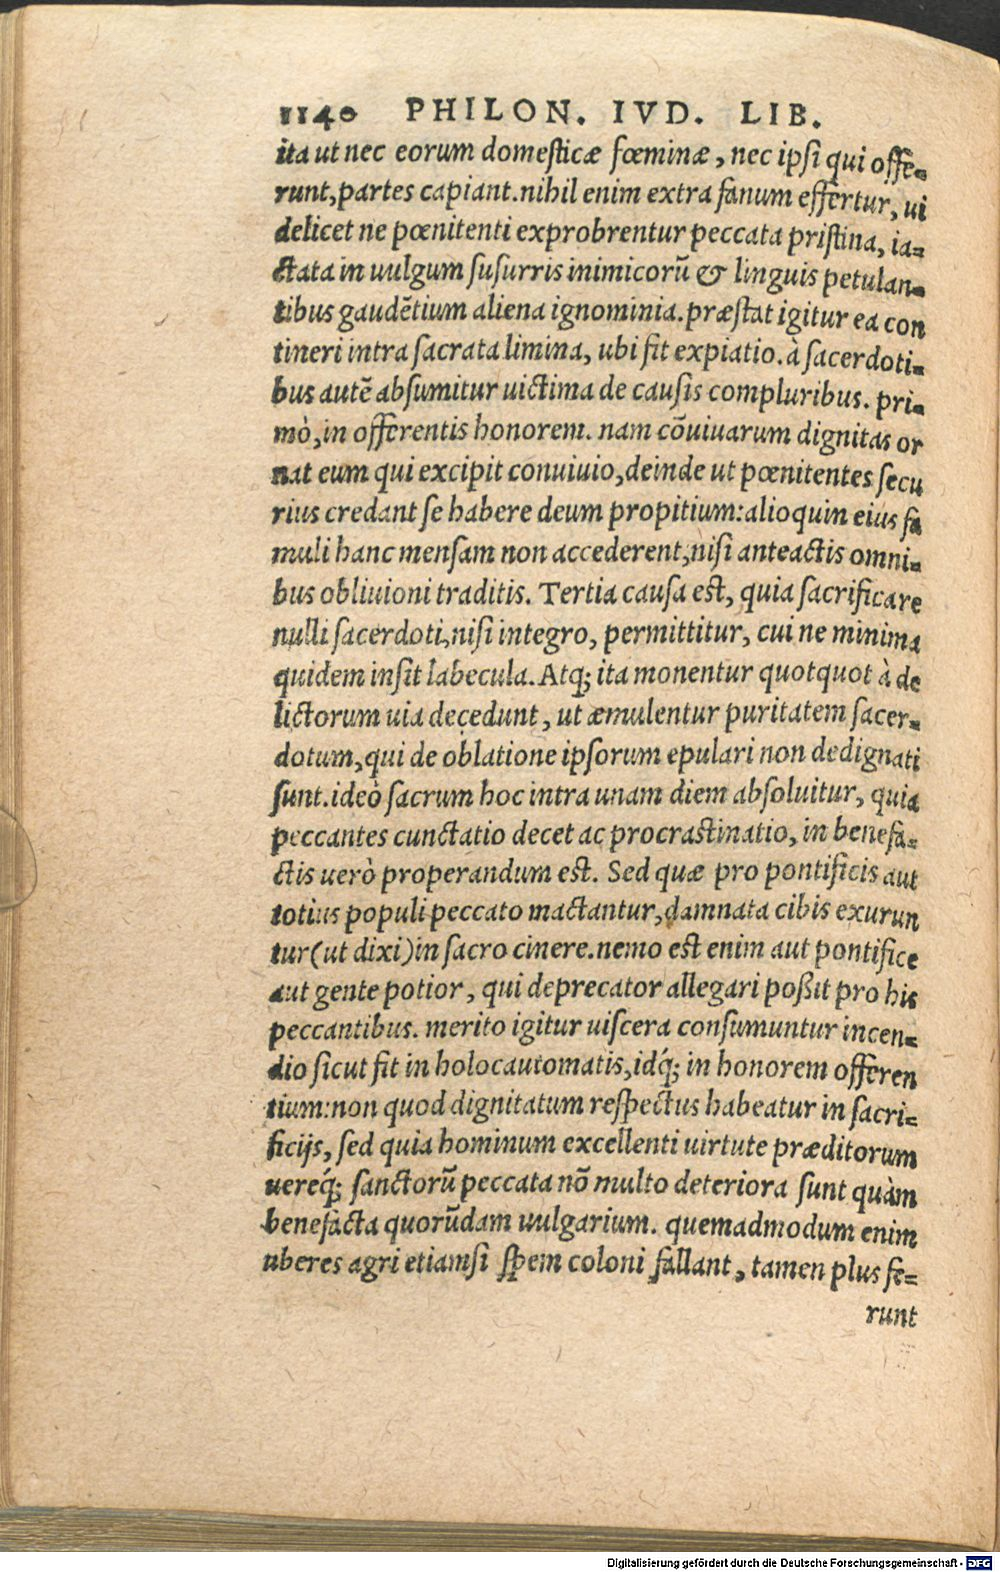 1140 PHILON. IVD. LIB.
ita ut nec eorum domesticæ fœminæ, nec ipsi qui offe-
runt, partes capiant. nihil enim extra fanum effertur, ui
delicet ne pœnitenti exprobrentur peccata pristina, ia-
ctata in uulgum susurris inimicorū & linguis petulan-
tibus gaudētium aliena ignominia. præstat igitur ea con
tineri intra sacrata limina, ubi fit expiatio. à sacerdoti-
bus autē absumitur uictima de causis compluribus. pri-
mò, in offerentis honorem. nam cōuiuarum dignitas or
nat eum qui excipit conuiuio, deinde ut pœnitentes secu
rius credant se habere deum propitium: alioquin eius fa
muli hanc mensam non accederent, nisi anteactis omni-
bus obliuioni traditis. Tertia causa est, quia sacrificare
nulli sacerdoti, nisi integro, permittitur, cui ne minima
quidem insit labecula. Atq; ita monentur quotquot à de
lictorum uia decedunt, ut æmulentur puritatem sacer-
dotum, qui de oblatione ipsorum epulari non dedignati
sunt. ideò sacrum hoc intra unam diem absoluitur, quia
peccantes cunctatio decet ac procrastinatio, in benefa-
ctis uerò properandum est. Sed quæ pro pontificis aut
totius populi peccato mactantur, damnata cibis exurun
tur (ut dixi) in sacro cinere. nemo est enim aut pontifice
aut gente potior, qui deprecator allegari poßit pro his
peccantibus. merito igitur uiscera consumuntur incen-
dio sicut fit in holocautomatis, idq́; in honorem offeren
tium: non quod dignitatum respectus habeatur in sacri-
ficijs, sed quia hominum excellenti uirtute præditorum
uereq́; sanctorū peccata nō multo deteriora sunt quàm
benefacta quorūdam uulgarium. quemadmodum enim
uberes agri etiamsi spem coloni fallant, tamen plus fe-
runt
Digitalisierung gefördert durch die Deutsche Forschungsgemeinschaft - DFG